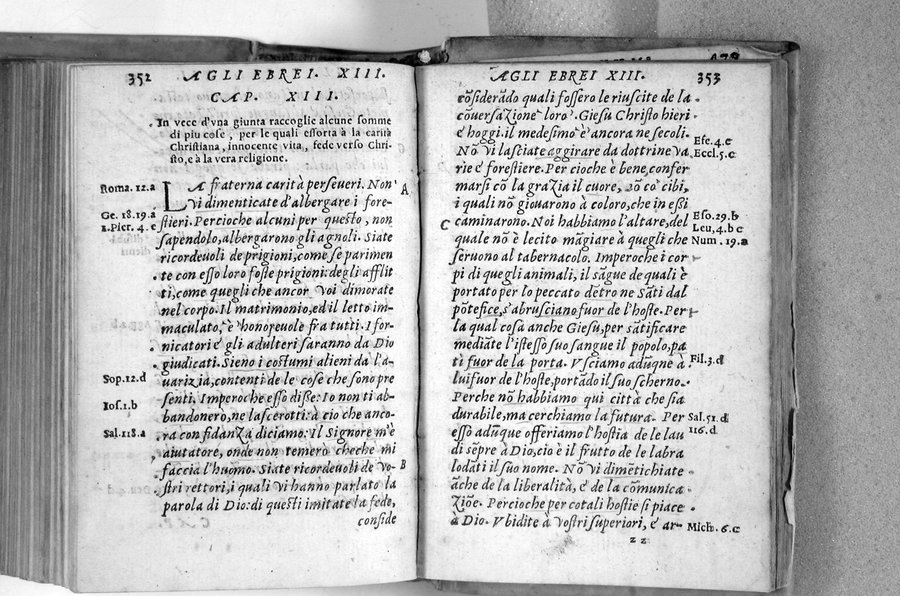 352 AGLI EBREI. XIII.
CAP. XIII.
In vece d'vna giunta raccoglie alcune somme
di piu cose, per le quali essorta à la carità
Christiana, innocente vita, fede verso Chri-
sto, e à la vera religione.
Roma. 12.a
LA fraterna carità perseueri. Non A
vi dimenticate d'albergare i fore-
Ge. 18.19.a
stieri. Percioche alcuni per questo, non
1. Piet. 4. c
sapendolo, albergarono gli agnoli. Siate
ricordeuoli de prigioni, come se parimen
te con esso loro foste prigioni: degli afflit
ti, come quegli che ancor voi dimorate
nel corpo. Il matrimonio, ed il letto im-
maculato, è honoreuole fra tutti. I for-
nicatori e gli adulteri saranno da Dio
giudicati. Sieno i costumi alieni da l'a-
Sop. 12.d
uarizia, contenti de le cose che sono pre
senti. Imperoche esso disse: Io non ti ab-
Ios. 1.b
bandonerò, ne lascerotti: à cio che anco-
Sal. 118.a
ra con fidanza diciamo: Il Signore m'è
aiutatore, onde non temerò cheche mi
faccia l'huomo. Siate ricordeuoli de vo- B
stri rettori, i quali vi hanno parlato la
parola di Dio: di questi imitate la fede,
conside
AGLI EBREI XIII. 353
cõsiderãdo quali fossero le riuscite de la
cõuersazione loro. Giesu Christo hieri
e hoggi. il medesimo è ancora ne secoli.
Efe. 4.c
Nõ vi lasciate aggirare da dottrine va
Eccl. 5.c
rie e forestiere. Per cioche è bene, confer
marsi cõ la grazia il cuore, nõ co' cibi,
i quali nõ giouarono à coloro, che in essi
Eso. 29.b
C caminarono. Noi habbiamo l'altare, del
Leu, 4.b c
quale nõ è lecito mãgiare à quegli che
Num. 19.a
seruono al tabernacolo. Imperoche i cor
pi di quegli animali, il sãgue de quali è
portato per lo peccato dẽtro ne Sãti dal
põtefice, s'abrusciano fuor de l'hoste. Per
la qual cosa anche Giesu, per sãtificare
mediãte l'istesso suo sangue il popolo, pa
tì fuor de la porta. Vsciamo adũque à
Fil. 3.d
lui fuor de l'hoste, portãdo il suo scherno.
Perche nõ habbiamo qui città che sia
durabile, ma cerchiamo la futura. Per
Sal. 51.d
esso adũque offeriamo l'hostia de le lau
116.d
di sẽpre à Dio, cio è il frutto de le labra
lodãti il suo nome. Nõ vi dimẽtichiate
ãche de la liberalità, e de la cõmunica
ziõe. Percioche per cotali hostie si piace
à Dio. Vbidite à vostri superiori, e ar-
Mich. 6.c
zz